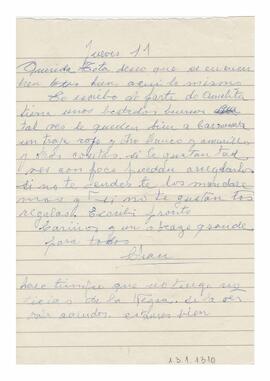 Jueves 11
Querida Tota deseo que se encuen
tren todos bien aqui lo mismo
Te escribo de parte de Anchita
tiene unos vestidos buenos
tal vez te queden bien a
un traje rojo y otro blanco y amarillo
y dos azules. si te gustan tal
ves con poco puedan arreglarlos
si no te vendes te los mandare
mas y si no te gustan los
regalas. Escribi pronto
Cariños y un abrazo grande
para todos
hace tiempo que no tengo no
ticias de la Negra. si la ves
dale saludos. estamos bien
13.1.1310